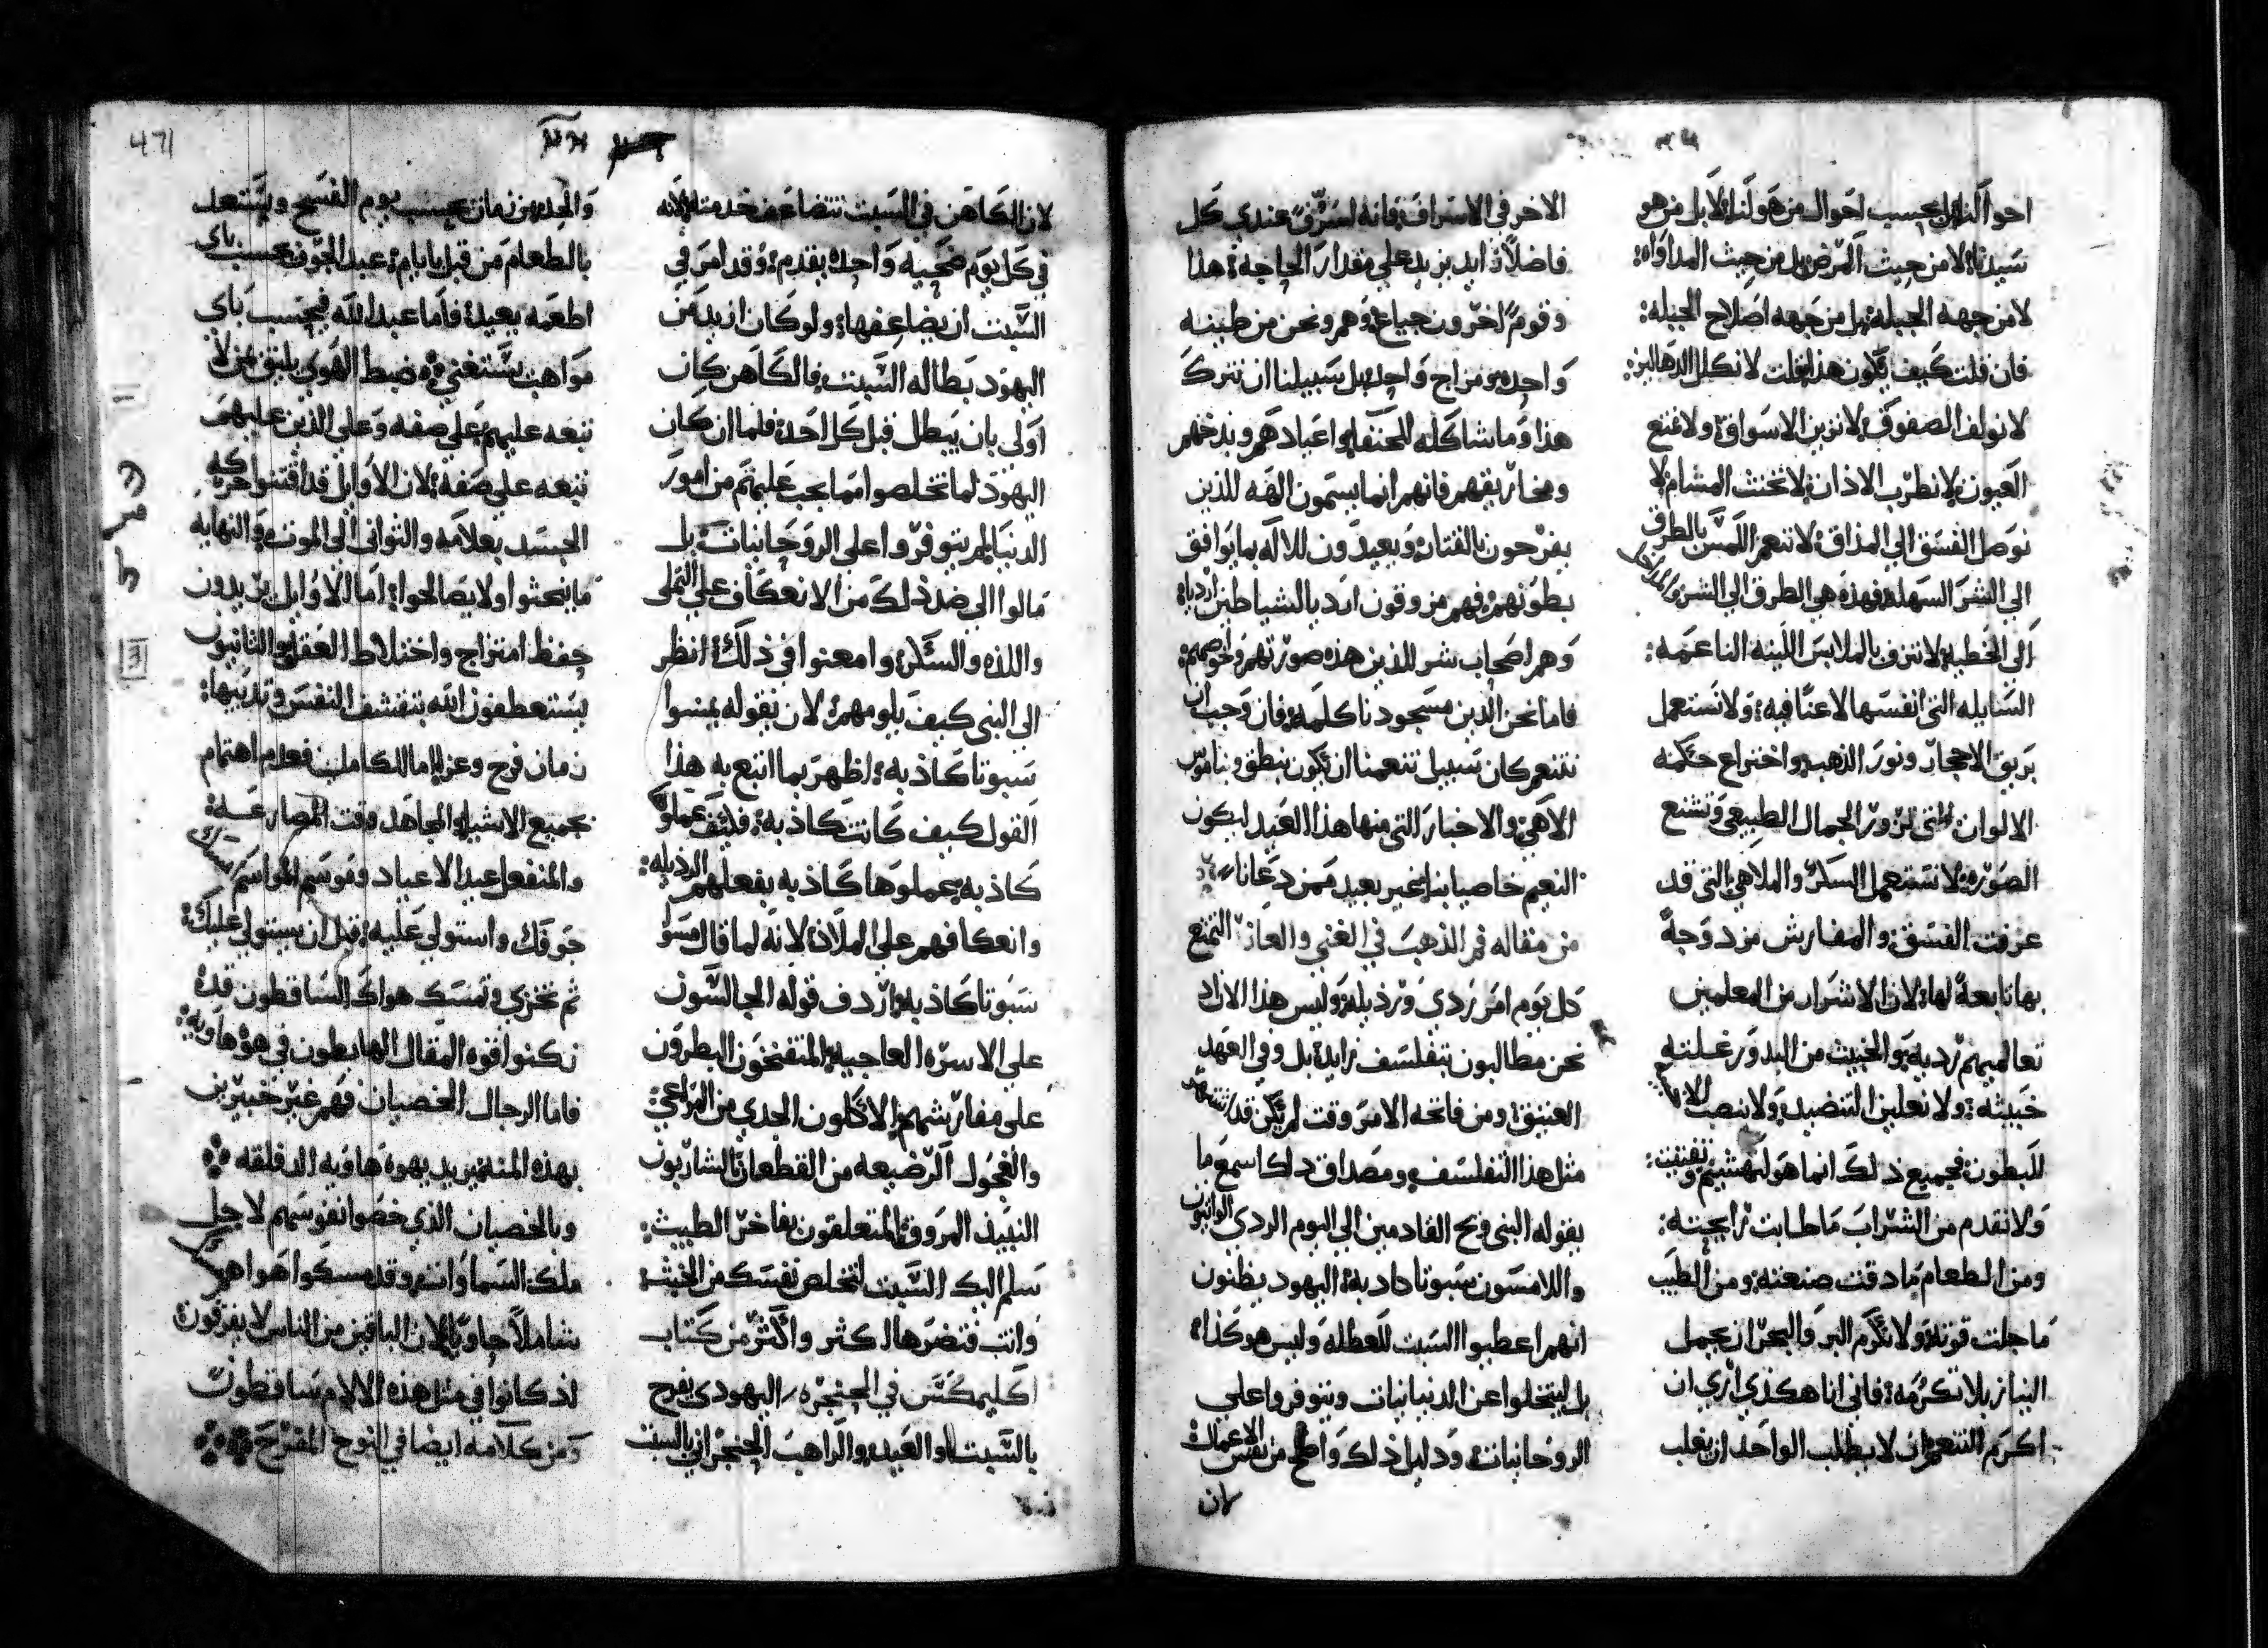 احوالنا بل بحسب احوال من هو لنا لا بل من هو
سيدنا لا من حيث المرض بل من حيث المداواه
لا من جهه الجبله بل من جهه اصلاح الجبله
فان قلت كيف يكون هذا قلت لا نكلل الدهاليز
لا نولف الصفوف لا نزين الاسواق ولا نمتع
العيون لا نطرب الاذان لا نخنث المشام لا
نوصل الفسق الي المذاق لا ننعم اللمس بالطرق
الي الشر السهله فهذه هي الطرق الي الشر والمداخل
الي الخطيه لا نترف بالملابس اللينه الناعمه
السايله التي انفسها لا عنا فيه ولا نستعمل
بريق الاحجار ونور الذهب واختراع حكمه
الالوان التي تزور الجمال الطبيعي وتشنع
الصوره لا نستعمل السكر والملاهي التي قد
عرفت الفسق والمفارش مزدوجة
بها تابعة لها لان الاشرار من المعلمين
تعاليمهم رديه والخبيث من البدور غلته
خبيثه ولا نعلين التنضيد ولا ننصب
للبطون فجميع ذلك انما هو
ولا نقدم من الشراب ما طابت رايحته
ومن الطعام ما دقت صنعته ومن الطيب
ما جلت قوته ولا نكرم البر والبحر ان يحمل
النيا زبلا نكرمه فاني انا هكذي اري ان
اكرم التنعم ان لا يطلب الواحد ان يغلب
الاخر في الاسراف فانه لسرف عندي كل
فاضلا زايد يزيد علي مقدار الحاجه هذا
وقوم اخرون جياع وهم ونحن من طينه
واحده ومزاج واحد بل سبيلنا ان نترك
هذا وما شاكله للحنفا واعيادهم وبدخهم
ومخاريقهم فانهم انما يسمون الهه للذين
يفرحون بالقتار ويعيدون للاله بما يوافق
بطونهم فهم مزوقون اردياء بالشياطين اردياء
وهم اصحاب شر للذين هذه صورتهم
فاما نحن الذين مسجودنا كلمه فان وجب ان
نتنعم كان سبيل تنعمنا ان يكون بنطق وناموس
الاهي والاخبار التي منها هذا العيد ليكون
النعيم خاصيا بنا غير بعيد ممن دعانا
من مقاله فم الذهب في الغني والعازر التمتع
كل يوم امر ردي ورذيله وليس هذا الان
نحن مطالبون بتفلسف زايد بل وفي العهد
العتيق ومن فاتحه الامر وقت لم يكن قد
مثل هذا التفلسف ومصداق ذلك اسمع ما
يقوله النبي ويح القادمين الي اليوم الردي الدانيون
واللامسون سبوتا كاذبه اليهود يظنون
انهم اعطيوا السبت للعطله وليس هو كذا
بل ليتخلوا عن الدنيانيات ويتوفروا علي
الروحانيات ودليل ذلك واضح من نفس الاعمال
لان
لان الكاهن في السبت تتضاعف خدمته لانه
في كل يوم ضحيه واحده يقدم وقد امر في
السبت ان يضاعفها ولو كان ازيد من
اليهود بطاله السبت فالكاهن كان
اولي بان يبطل قبل كل احد فلما ان كان
اليهود لما تخلصوا مما يجب عليهم من امور
الدنيا لم يتوفروا علي الروحانيات بل
مالوا الي ضد ذلك من الانعكاف علي التملي
واللذه والسكر وامعنوا في ذلك انظر
الي النبي كيف يلومهم لان بقوله يمسوا
سبوتا كاذبه اظهر بما اتبع به هذا
القول كيف كانت كاذبه فكيف عملوا
كاذبه يعملوها كاذبه بفعلهم الرذيله
وانعكافهم علي الملاذ لانه لما قال مسوا
سبوتا كاذبه اردف قوله الجالسون
علي الاسره العاجيه المتفنخون البطرون
علي مفارشهم الاكلون الجدي من المراعي
والعجول الرضيعه من القطعان الشاربون
النبيذ المروق المتعلقون بفاخر الطيب
سلم اليك السبت لتخلص نفسك من الخبث
وانت فتضرها اكثر واكثر من كتاب
اكليمكس في الحنجره اليهودي يفرح
بالسبت او العيد والراهب الحنجراني بالسبت
والحد من زمان يحسب يوم الفسح ويستعد
بالطعام من قبل بايام عبد الجوف يحسب باي
اطعمه يعيد فاما عبد الله فيحسب باي
مواهب يستغني ضبط الهوي يليق بمن لا
تبعه عليهم علي صفه وعلي الذين عليهم
تبعه علي صفه لان الاوايل قد اقتنوا حركه
الجسد بعلامه والثواني الي الموت والنهايه
ما يحثوا ولا يصالحوا اما الاوايل يريدون
حفظ امتزاج واختلاط العقل والثانيون
يستعطفون الله بتقشف النفس وتدييها
زمان فرح وعزا اما للكاملين فعدم اهتمام
بجميع الاشيا والمجاهد وقت المصارعه
والمنفعل عيد الاعياد وموسم المواسم
جوفك واستولي عليه قبل ان يستولي عليك
ثم تخزي وتمسك هواك الساقطون قد
ركنوا قوه المقال الهابطون في هوه هاويه
فاما الرجال الخصيان فهم غير خبيرين
بهذه المنه يريد بهوه هاويه القلقه
وبالخصيان الذي خصوا نفوسهم لاجل
ملك السماوات وقد مسكوا اهواهم
شاملا حاويا لان الباقين من الناس لا يفرقون
اذ كانوا في مثل هذه الالام ساقطون
ومن كلامه ايضا في النوح المفرح
471